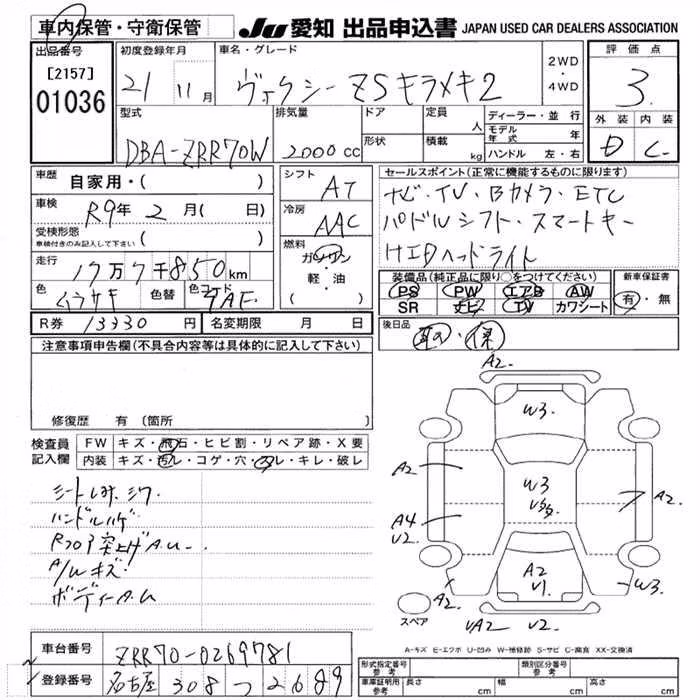 車内保管・守衛保管
JU 愛知 出品申込書 JAPAN USED CAR DEALERS ASSOCIATION
出品番号 初度登録年月 車名・グレード 評価点
[2157]
01036 21 11月 ヴォクシーZSキラメキ2 2WD・4WD 3
型式 排気量 ドア 定員 人 ディーラー・並行 外装 内装
DBA-ZRR70W 2000cc 形状 積載 kg モデル年式 年 D C
ハンドル 左・右
車歴 自家用・( ) シフト AT セールスポイント(正常に機能するものに限ります)
車検 R9年 2月( 日) 冷房 AAC ナビ・TV・Bカメラ・ETC
受検形態 車検付きのみ記入して下さい ( ) 燃料 ガソリン・軽・油 ( ) パドルシフト・スマートキー
走行 17万7千850km HIDヘッドライト
色 ムラサキ 色替 色コード 9AE 装備品(純正品に限り○をつけてください) 新車保証書
PS PW エアB AW 有・無
SR ナビ TV カワシート
R券 13330円 名変期限 月 日 後日品 取・保
注意事項申告欄(不具合内容等は具体的に記入して下さい)
修復歴 有 (箇所
検査員記入欄 FW キズ・飛石・ヒビ割・リペア跡・X要
内装 キズ・汚レ・コゲ・穴・スレ・キレ・破レ
シートしみ.シワ
ハンドルハゲ
Rフロア突上げA.U
A/Wキズ
ボディーA.U
A2.
W3.
A2
W3
A2.
A4
V2.
A2
V1.
A2.
W3.
VA2
V2.
スペア
A-キズ E-エクボ U-凹み W-補修跡 S-サビ C-腐食 XX-交換済
車台番号 ZRR70-0269781
登録番号 名古屋 308 つ 2689
形式指定番号 参考 類別区分番号 参考
車庫証明用 参考 長さ cm 幅 cm 高さ cm